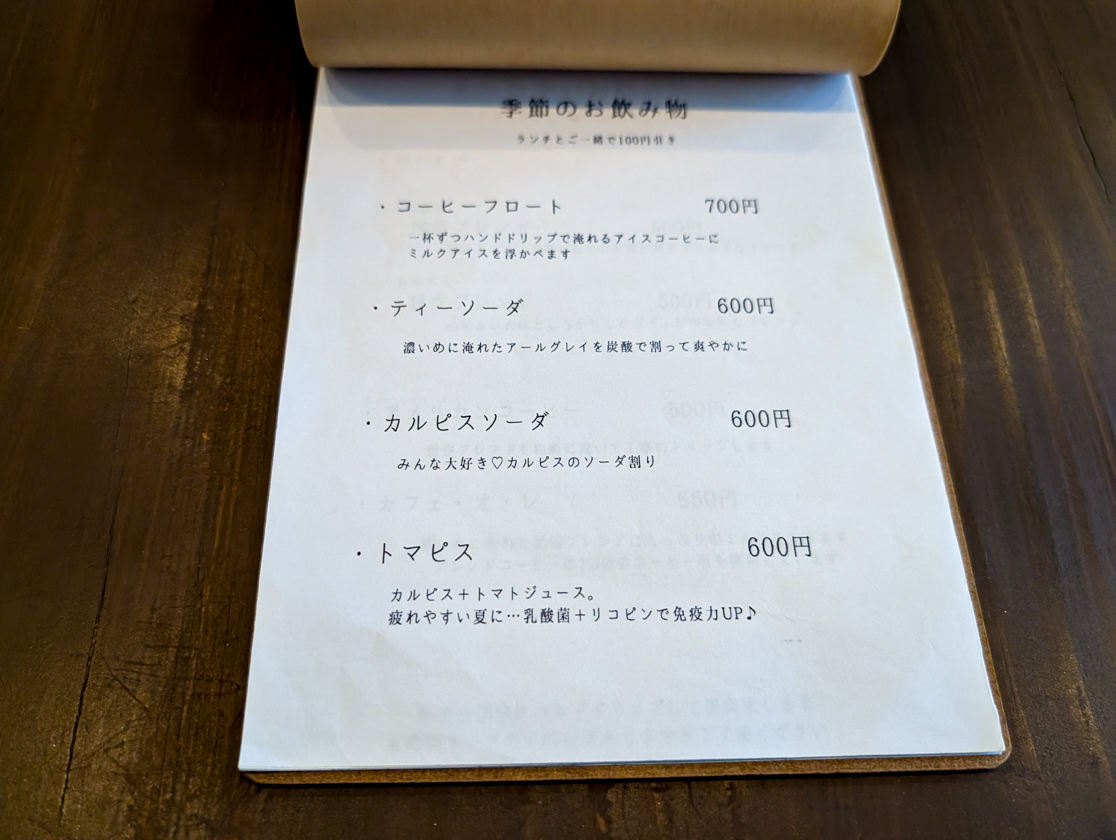 季節のお飲み物
ランチとご一緒で100円引き
・コーヒーフロート 700円
一杯ずつハンドドリップで淹れるアイスコーヒーに
ミルクアイスを浮かべます
・ティーソーダ 600円
濃いめに淹れたアールグレイを炭酸で割って爽やかに
・カルピスソーダ 600円
みんな大好き♡カルピスのソーダ割り
・トマピス 600円
カルピス＋トマトジュース。
疲れやすい夏に…乳酸菌＋リコピンで免疫力UP♪